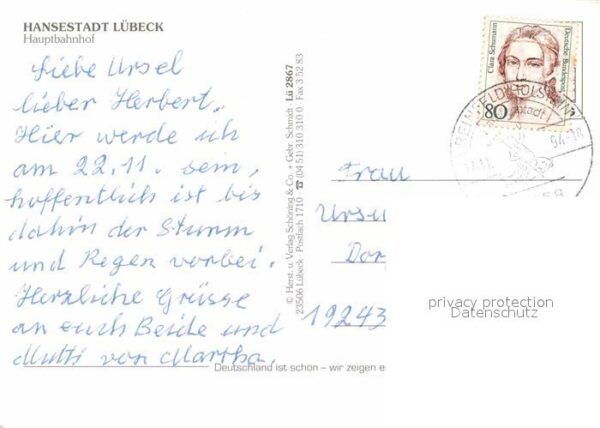 HANSESTADT LÜBECK
Hauptbahnhof
Liebe Ursel
lieber Herbert.
Hier werde ich
am 22.11. sein,
hoffentlich ist bis
dahin der Sturm
und Regen vorbei.
Herzliche Grüsse
an euch Beide und
Mutti von Martha.
© Herst. u. Verlag Schöning & Co. + Gebr. Schmidt Lü 2867
23506 Lübeck · Postfach 1710 ☎ (04 51) 310 310 0 Fax 3 52 83
Clara Schumann
Deutsche Bundespost
80
REINFELD HOLSTEIN
94-18
Frau
Ursu
Dor
19243
privacy protection
Datenschutz
Deutschland ist schön – wir zeigen es